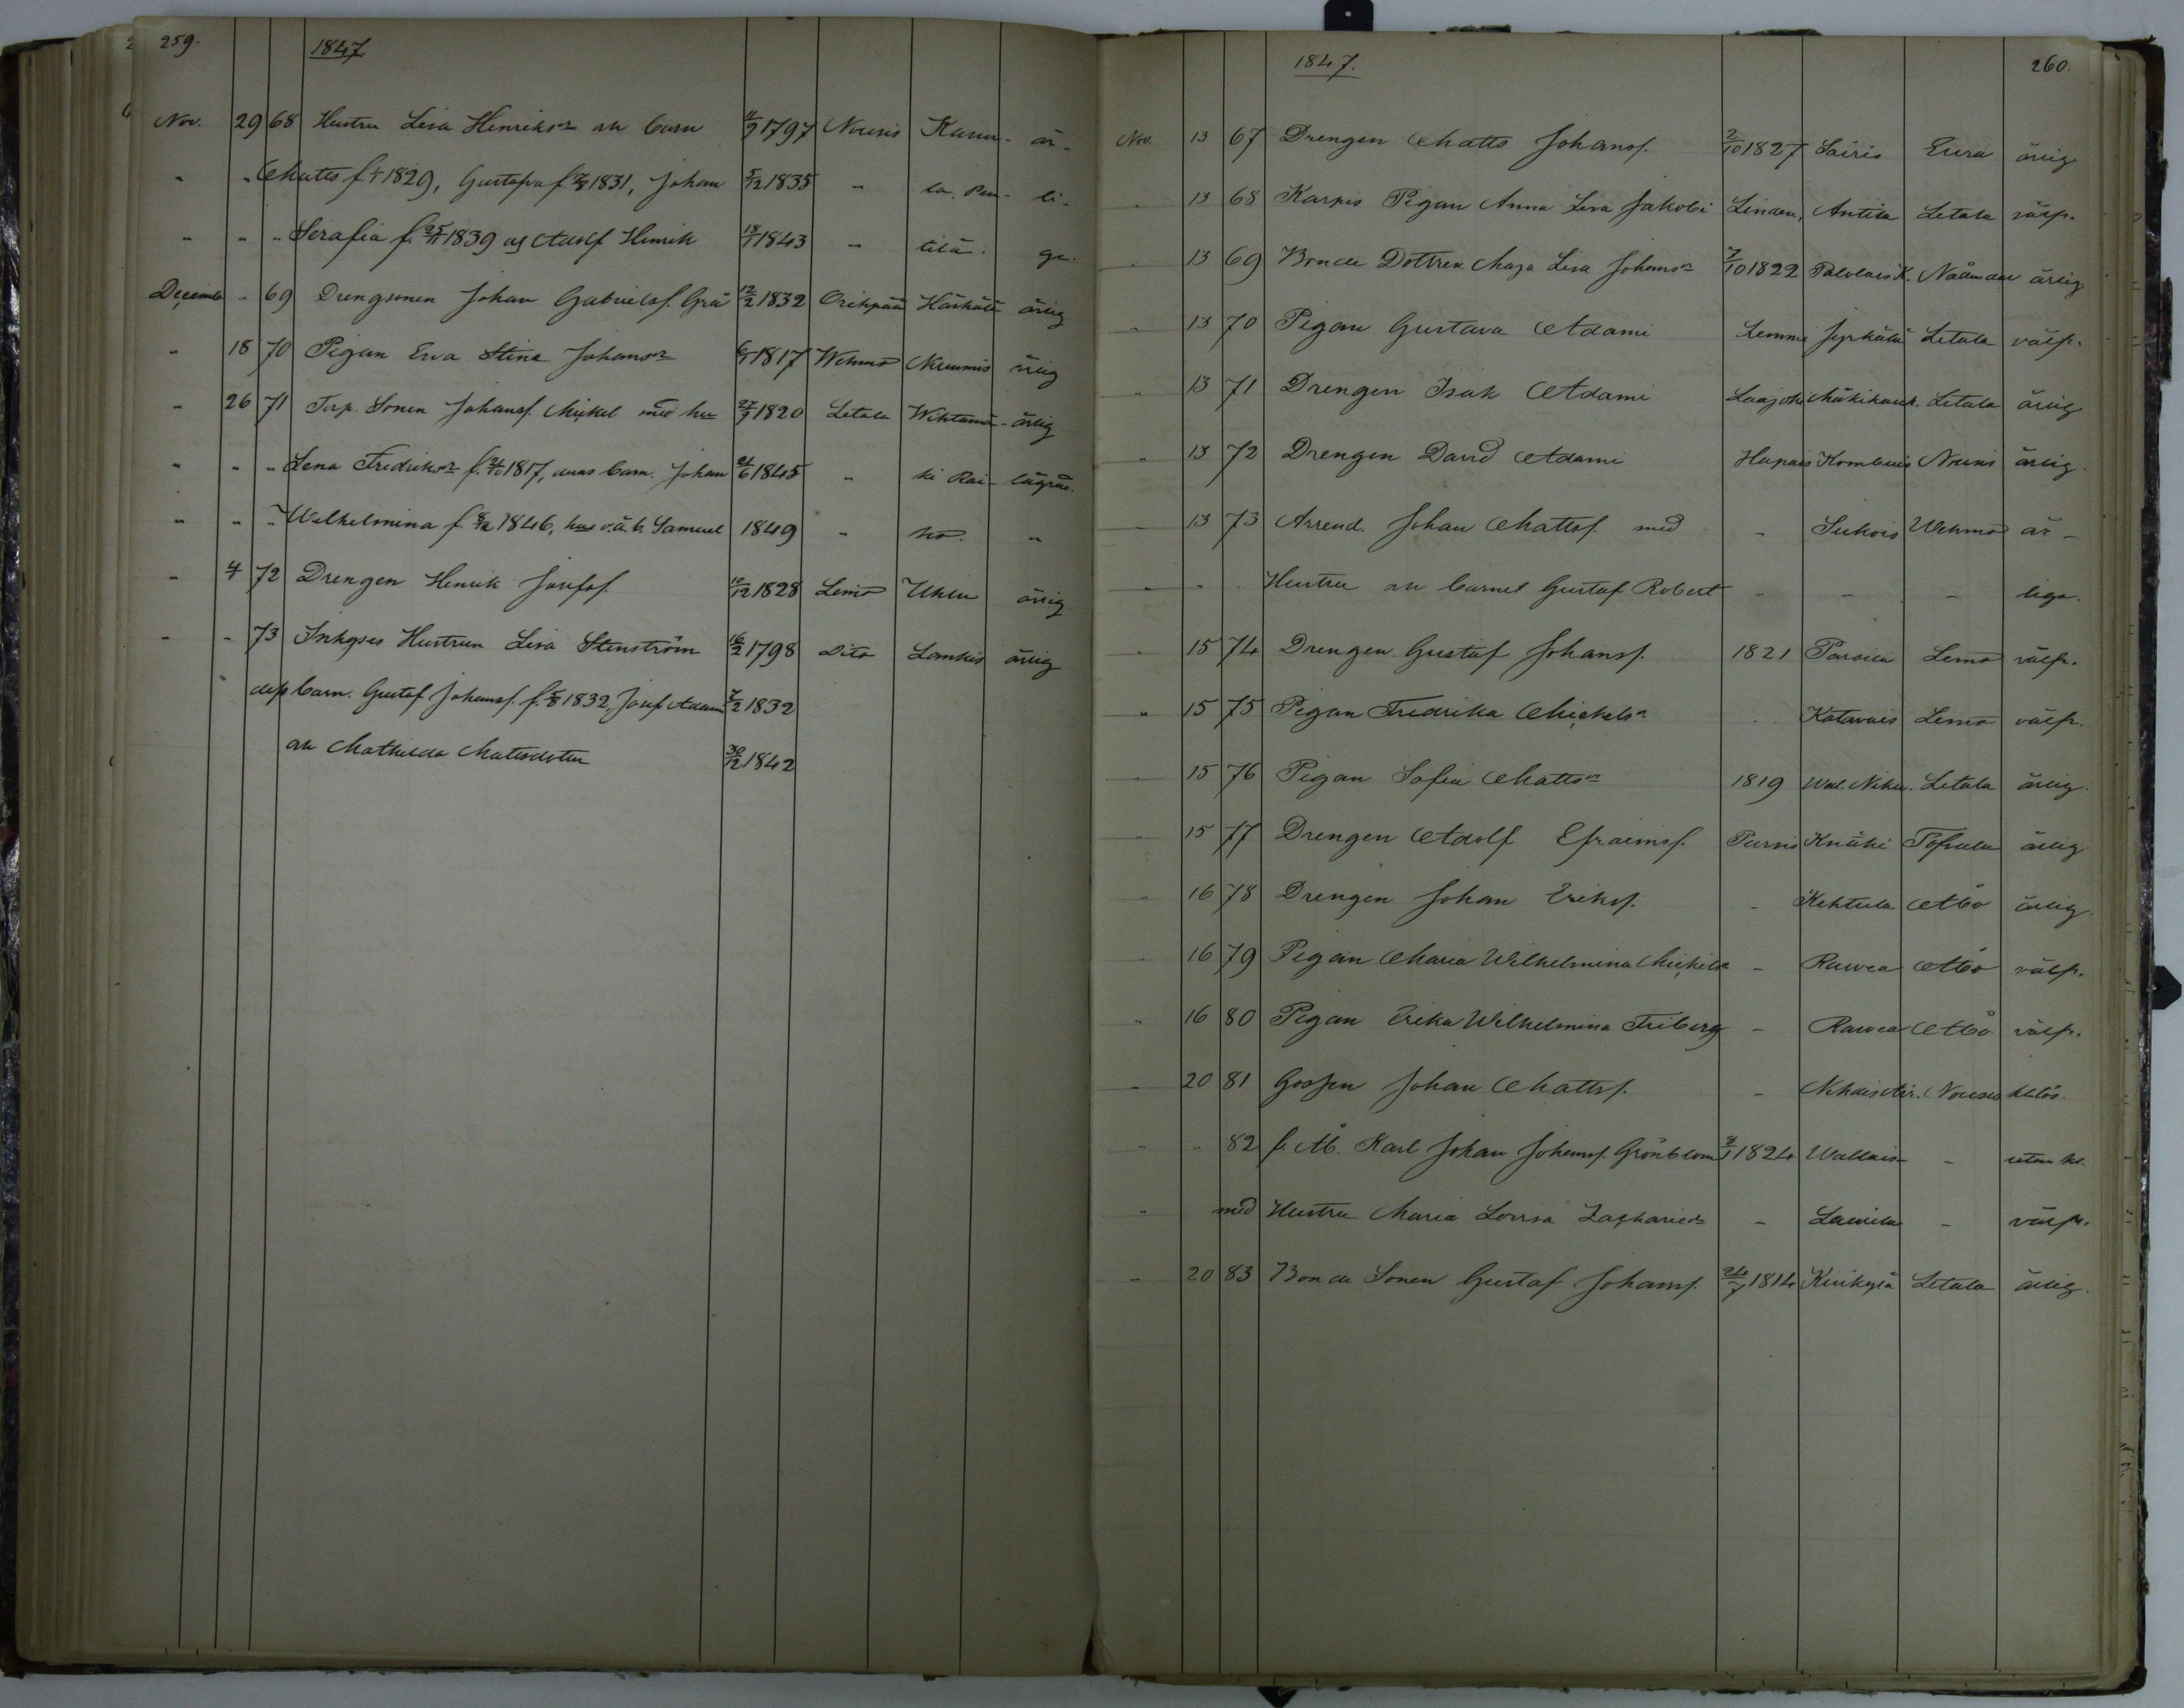 259.
1847
Nov. 29 68 Hustru Lisa Henriks:r o barn 1797 Nousis är-
" " Matts f. 1829, Gustafva f. 1831, Johan 5/12 1835 " li-
" " " Serafia f. 25/11 1839 o Adolf Henrik 18/1 1843 " tilä. ga.
Decemb " 69 Drengsonen Johan Gabrielss. 12/2 1832 Orihpää Härkälä ärlig
" 18 70 Pigan Eva Stina Johans:r 1817 Wehmo Nummis ärlig
" 26 71 Torp. Sonen Johanss. Mickel med hu 27/9 1820 Letala ärlig
" " " Lena Fredriks:r f. 1817, deras barn. Johan 1845 " ki Rai-
" " " Wilhelmina f. 8/12 1846, Samuel 1849 " "
" 4 72 Drengen Henrik Josefss. 10/12 1828 Lemo ärlig
" " 73 Inhyses Hustrun Lisa Stenström 16/2 1798 Dito Lankis ärlig
" dess barn. Gustaf Johanss. f. 1832, Josef Adam 7/2 1832
o Mathilda Matsdotter 30/12 1842
1847.
260.
Nov. 13 67 Drengen Matts Johanss. 2/10 1827 Sairis Eura ärlig
" 13 68 Karpis Pigan Anna Lisa Jakobi Lindau, Antila Letala välfr.
" 13 69 Bonde Dottren Maja Lisa Johans:r 7/10 1822 Palolais K. Nådendal ärlig
" 13 70 Pigan Gustava Adami Lemmi Jyrkälä Letala välfr.
" 13 71 Drengen Isak Adami Laajoki Letala ärlig
" 13 72 Drengen David Adami Hapais Kombuis Nousis ärlig
" 13 73 Arrend. Johan Mattss. med - Sukois Wehmo är-
" " Hustru o barnet Gustaf Robert - - - liga.
" 15 74 Drengen Gustaf Johanss. 1821 Parsila Lemo välfr.
" 15 75 Pigan Fredrika Mickels:r Katavais Lemo välfr.
" 15 76 Pigan Sofia Matts:r 1819 Letala ärlig
" 15 77 Drengen Adolf Efraimss. Purnis Knühi Töfsala ärlig
" 16 78 Drengen Johan Erikss. - Kehtula Åbo ärlig.
" 16 79 Pigan Maria Wilhelmina Mickels:r - Rawea Åbo välfr.
" 16 80 Pigan Erika Wilhelmina Friberg - Rawea Åbo välfr.
" 20 81 Gossen Johan Mattss. - Nousis
" " 82 f. Åb. Karl Johan Johanss. Grönblom 1824 Wallais - utan kl.
" med Hustru Maria Lovisa Zacharied:r - Laurila - välfr.
" 20 83 Bonde Sonen Gustaf Johanss. 24/7 1814 Kirikylä Letala ärlig.